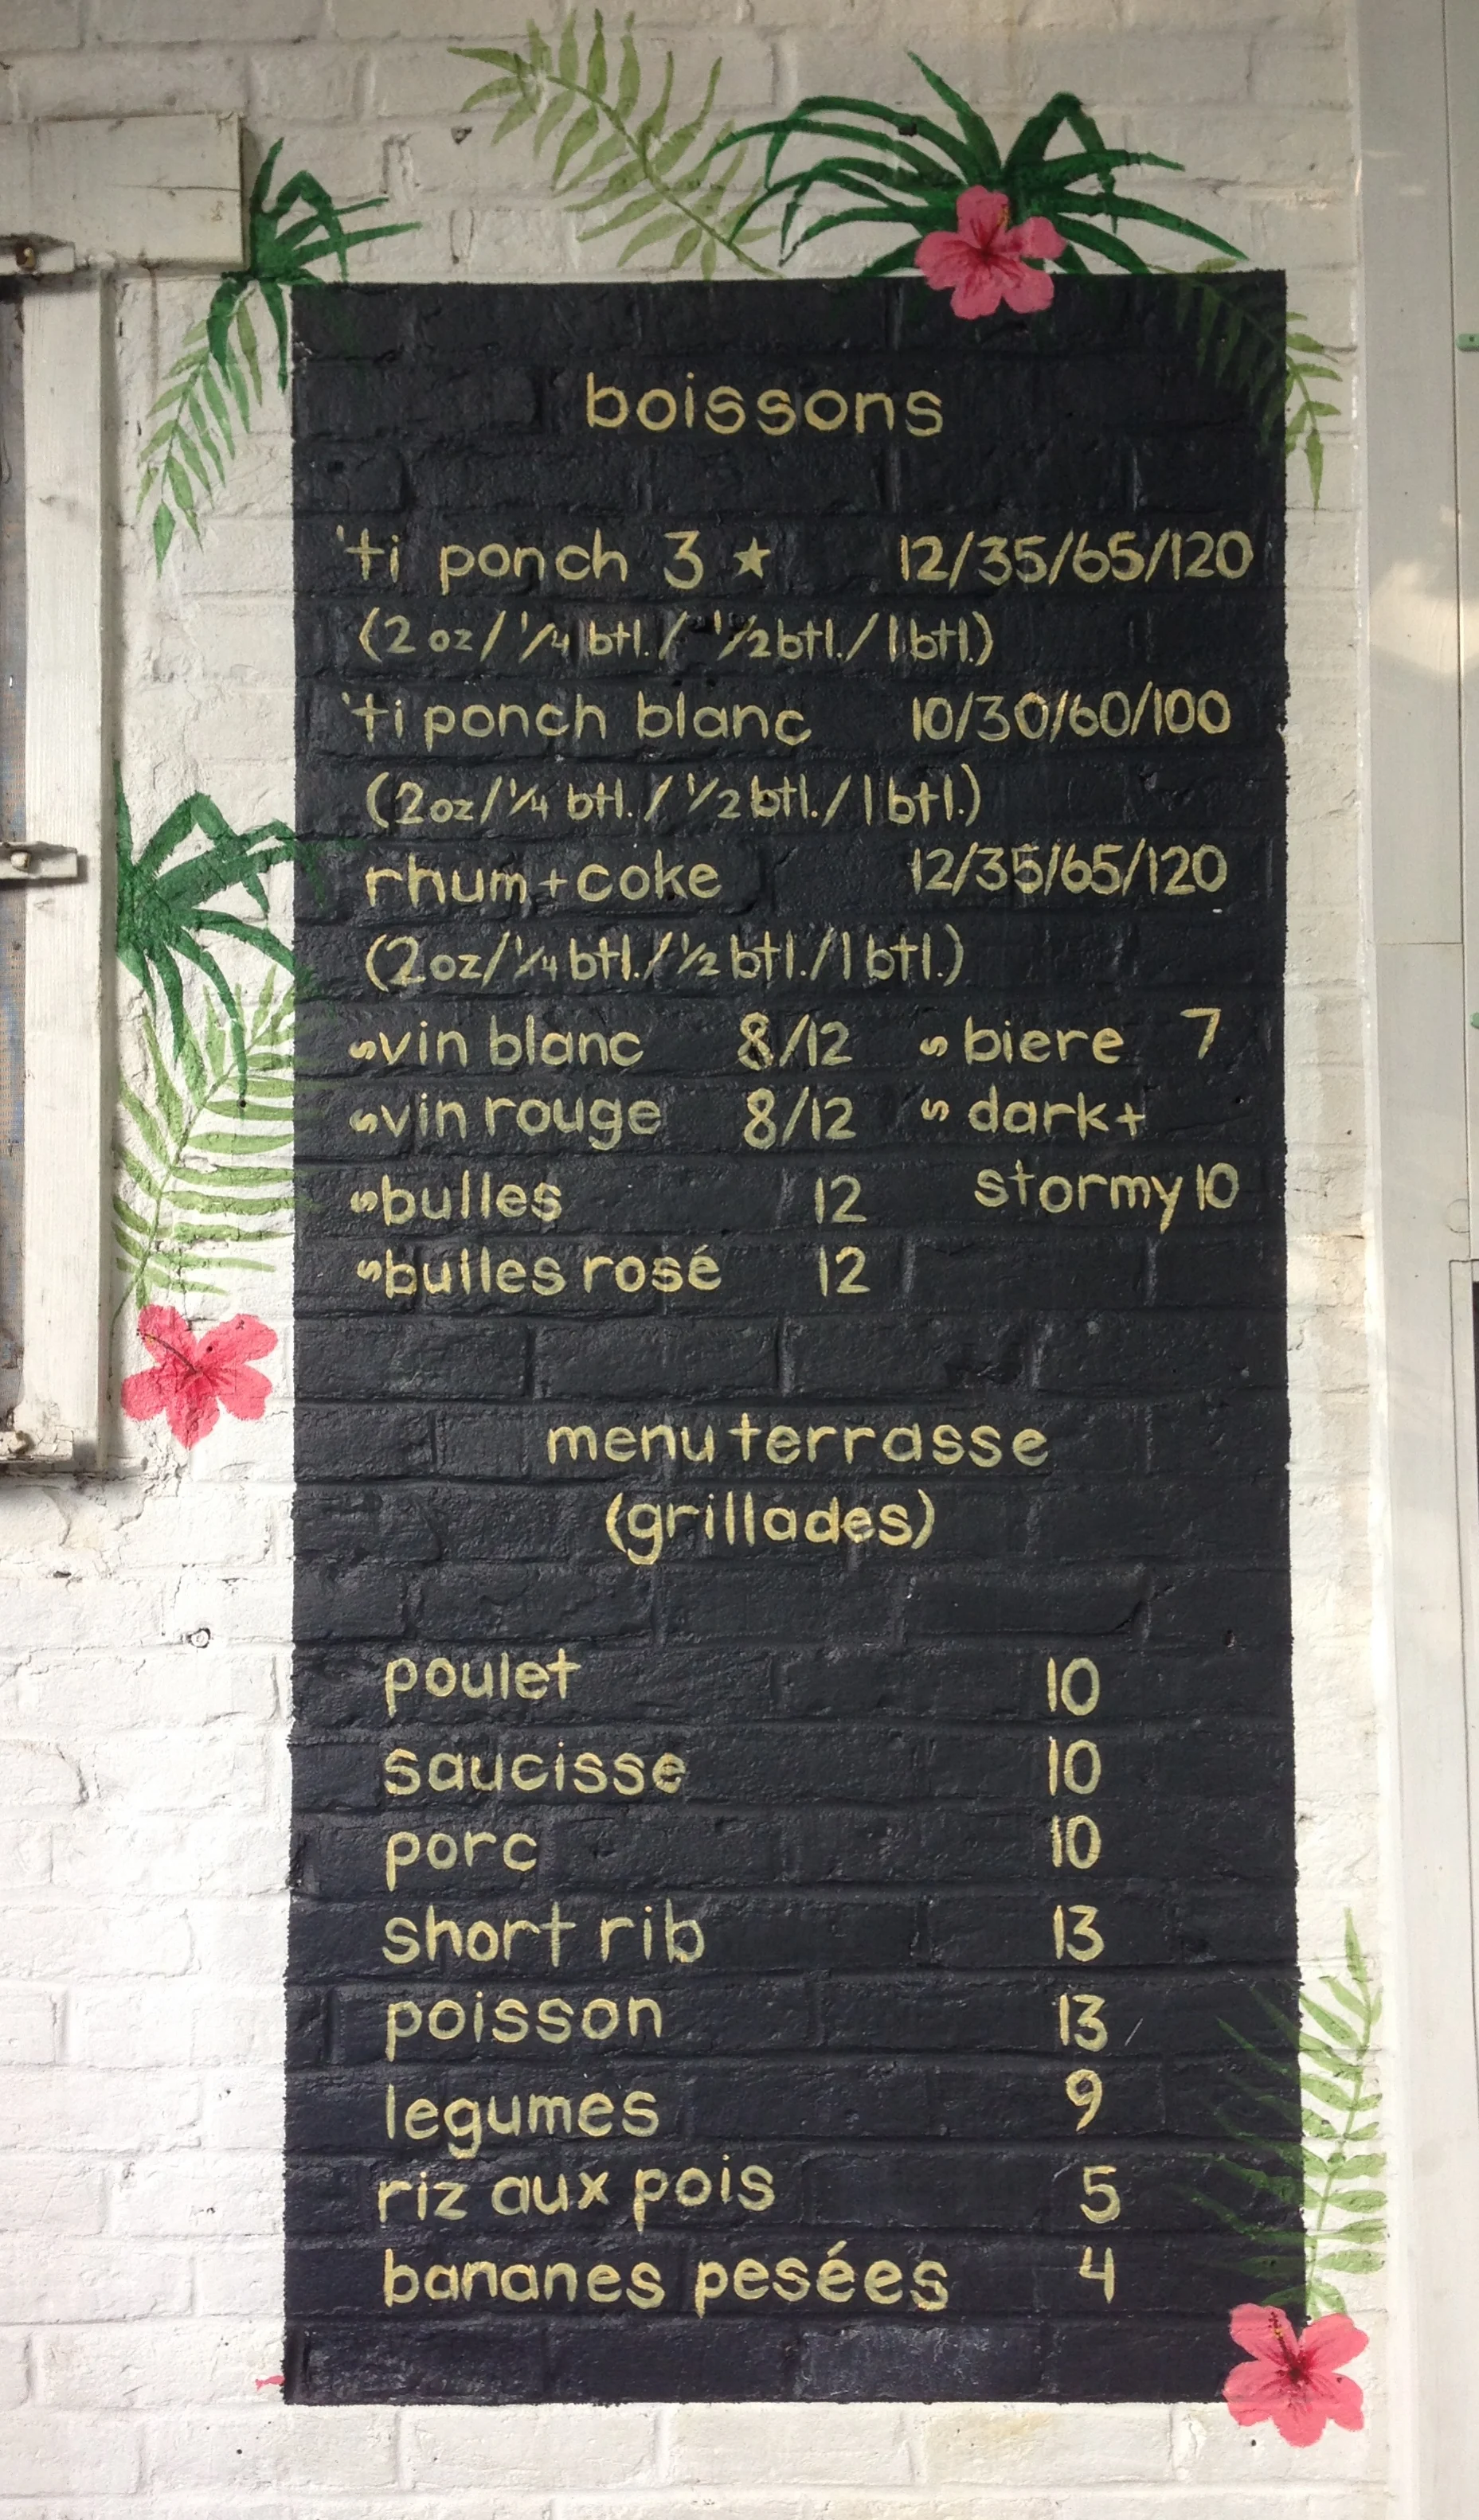 boissons
'ti ponch 3 ★ 12/35/65/120
(2 oz/ 1/4 btl./ 1/2 btl./ 1 btl.)
'ti ponch blanc 10/30/60/100
(2 oz/ 1/4 btl./ 1/2 btl./ 1 btl.)
rhum + coke 12/35/65/120
(2 oz/ 1/4 btl./ 1/2 btl./ 1 btl.)
~vin blanc 8/12 ~ biere 7
~vin rouge 8/12 ~ dark +
~bulles 12 stormy 10
~bulles rosé 12
menu terrasse
(grillades)
poulet 10
saucisse 10
porc 10
short rib 13
poisson 13
legumes 9
riz aux pois 5
bananes pesées 4